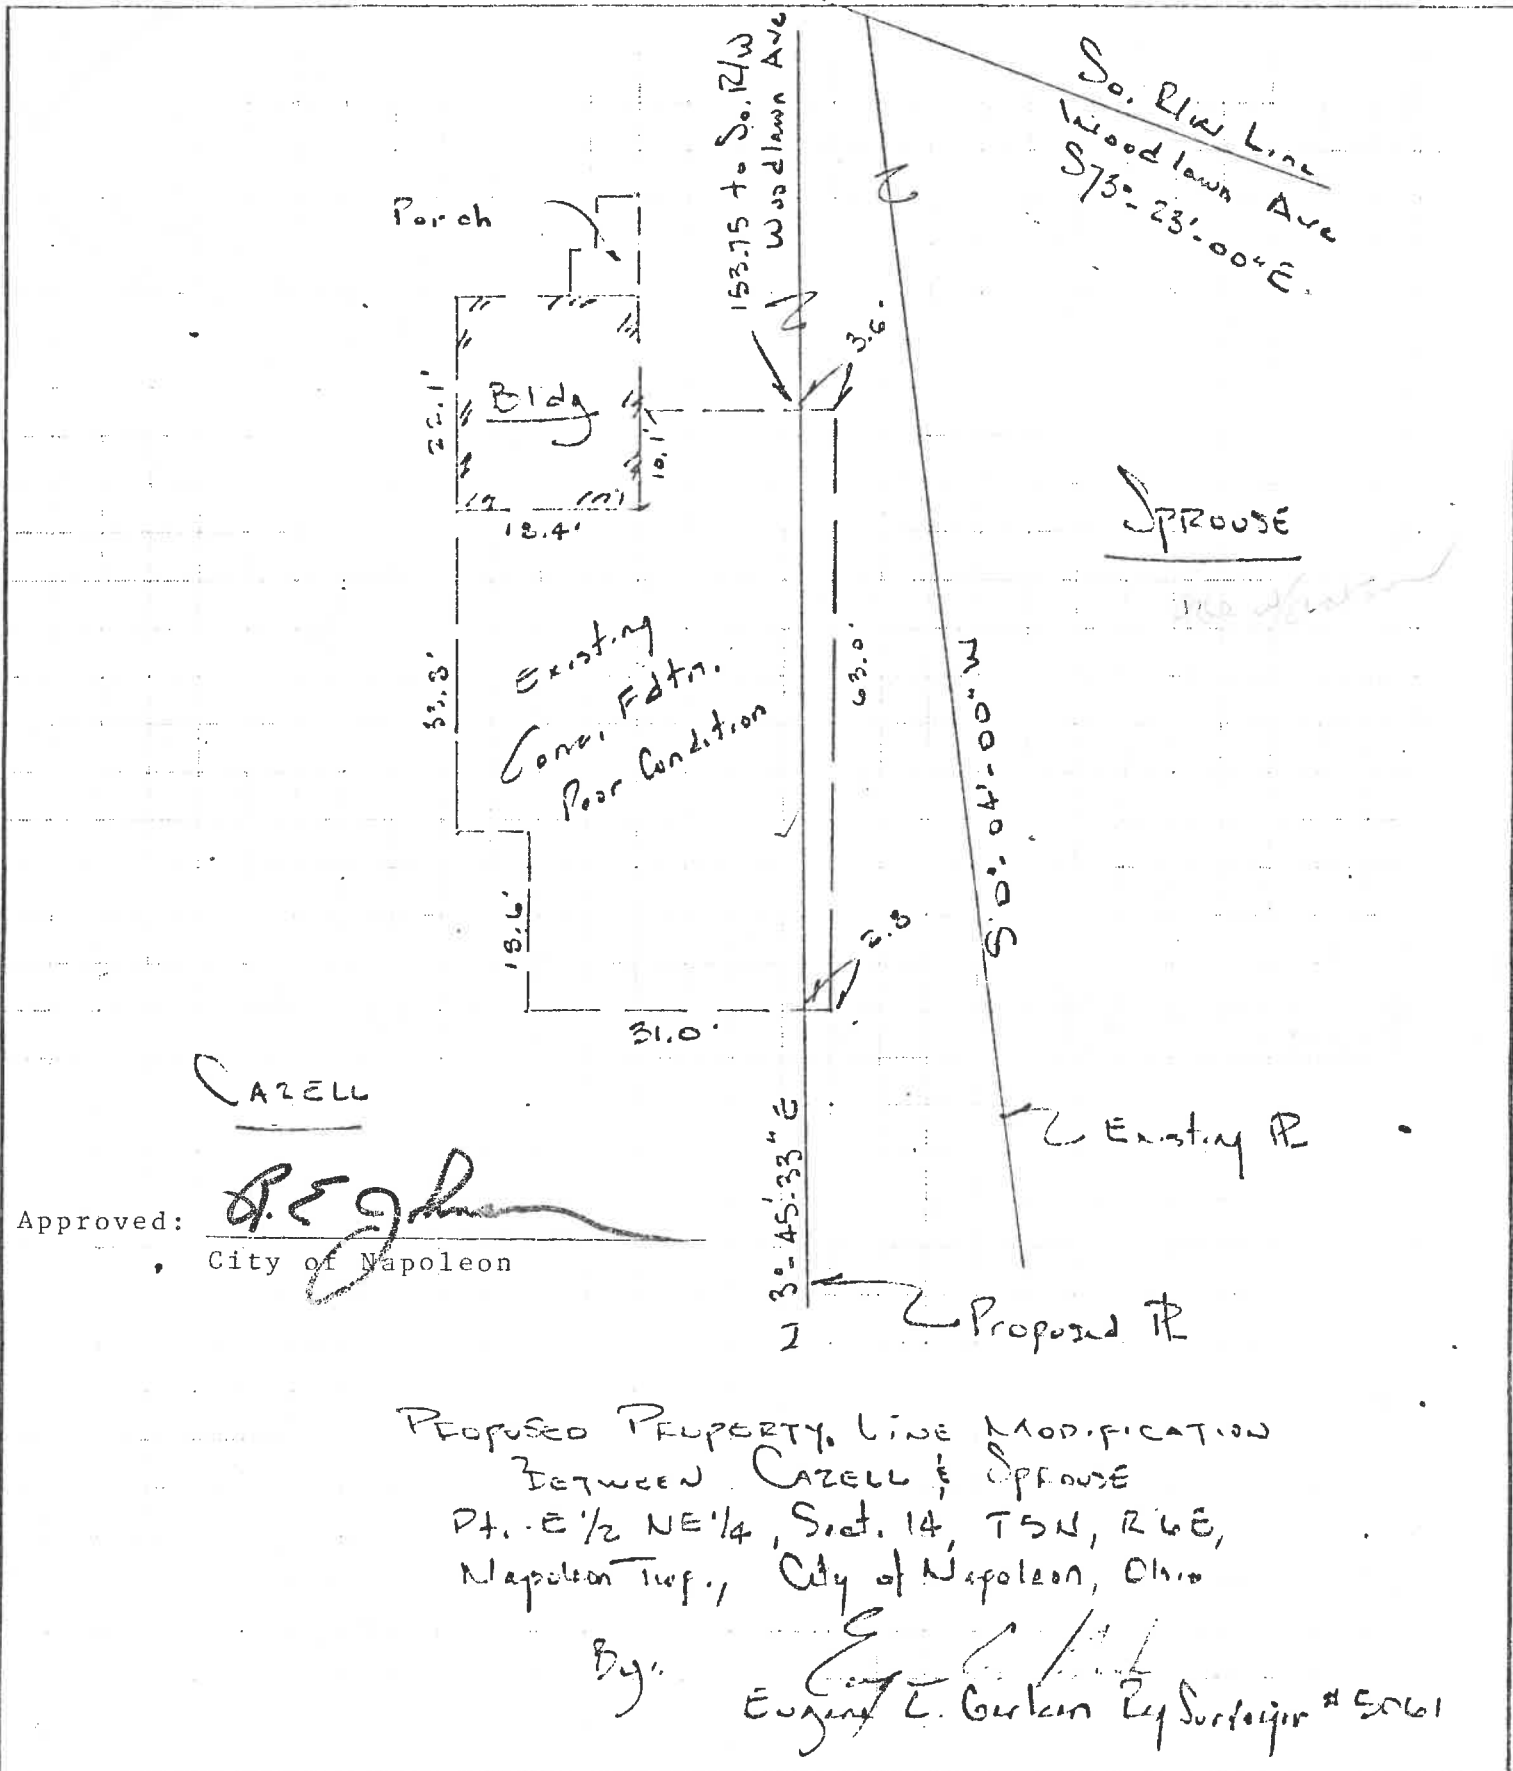 So. R/W Line
Woodlawn Ave
S73°-23'-00"E
153.75 to So. R/W
Woodlawn Ave
Porch
3.6
22.1'
Bldg
10.1'
18.4'
SPROUSE
Existing
Conc. Fdtn.
Poor Condition
33.8'
63.0'
S 0°-04'-00" W
18.6'
2.8
31.0'
CAZELL
Existing PL
Approved:
City of Napoleon
N 3°-45'-33" E
Proposed PL
PROPOSED PROPERTY LINE MODIFICATION
BETWEEN CAZELL & SPROUSE
Pt. E 1/2 NE 1/4, Sect. 14, T5N, R6E,
Napoleon Twp., City of Napoleon, Ohio
By:
Eugene Reg Surveyor #